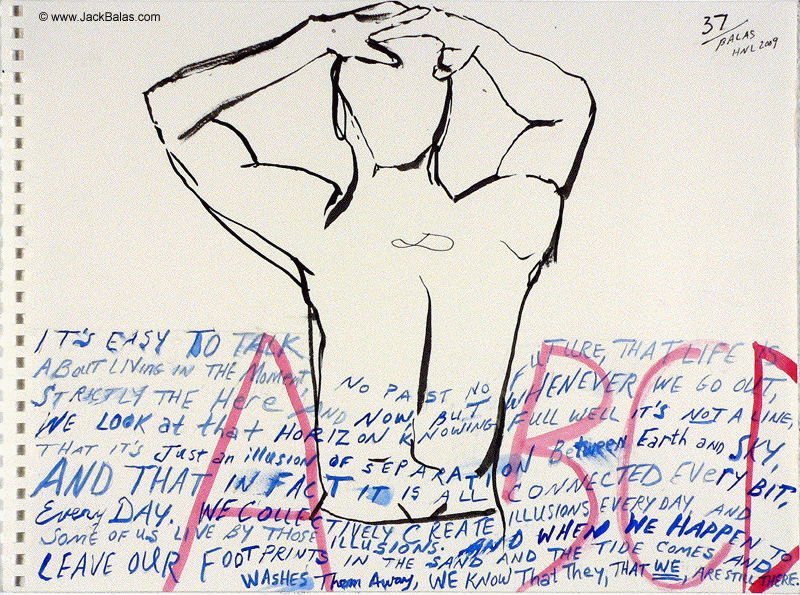 © www.JackBalas.com
37
BALAS
HNL 2009
IT'S EASY TO TALK
ABOUT LIVING IN THE Moment,
STRICTLY THE Here AND NOW, NO PAST NO FUTURE, THAT LIFE IS
WE LOOK at that HORIZON KNOWING BUT WHENEVER WE GO OUT,
FULL WELL IT'S NOT A LINE,
THAT IT'S Just an illusion OF SEPARATION Between Earth and SKY,
AND THAT IN FACT IT IS ALL CONNECTED EVeRY BIT,
EVERY DAY. WE COLLECTIVELY CREATE ILLUSIONS EVERY DAY AND
SOME OF US LIVE BY THOSE ILLUSIONS. AND WHEN WE HAPPEN TO
LEAVE OUR FOOTPRINTS IN THE SAND AND THE TIDE COMES AND
WASHES Them Away, WE KNOW That They, THAT WE, ARE STILL THERE.
A BCD